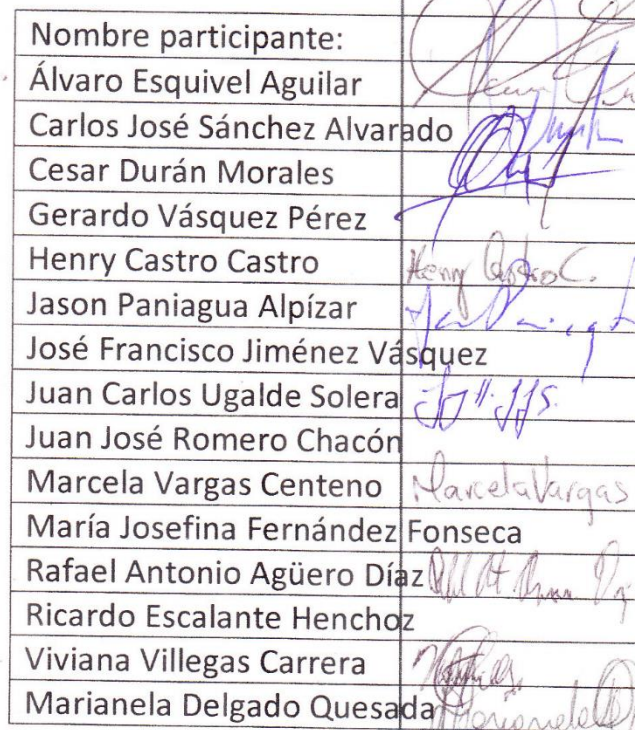 Nombre participante:
Álvaro Esquivel Aguilar
Carlos José Sánchez Alvarado
Cesar Durán Morales
Gerardo Vásquez Pérez
Henry Castro Castro Henry Castro C.
Jason Paniagua Alpízar
José Francisco Jiménez Vásquez
Juan Carlos Ugalde Solera
Juan José Romero Chacón
Marcela Vargas Centeno Marcela Vargas
María Josefina Fernández Fonseca
Rafael Antonio Agüero Díaz
Ricardo Escalante Henchoz
Viviana Villegas Carrera
Marianela Delgado Quesada Marianela